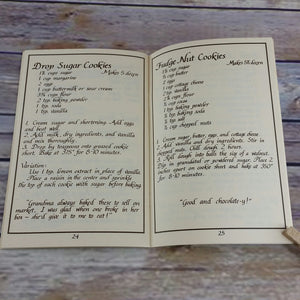 Drop Sugar Cookies
Makes 5 dozen
1½ cup sugar
1 cup margarine
2 eggs
1 cup buttermilk or sour cream
3¾ cup flour
2 tsp. baking powder
1 tsp. soda
1 tsp. vanilla
1. Cream sugar and shortening. Add eggs
and beat well.
2. Add milk, dry ingredients, and vanilla
and mix thoroughly.
3. Drop by teaspoons onto greased cookie
sheet. Bake at 375° for 8-10 minutes.
Variation:
Use 1 tsp. lemon extract in place of vanilla.
Place a raisin in the center and sprinkle
the top of each cookie with sugar before baking.
"Grandma always baked these to sell on
market. I was glad when one broke in her
box - she'd give it to me to eat!"
24
Fudge Nut Cookies
Makes 3½ dozen
cup sugar
cup butter
2 eggs
1 cup cottage cheese
2 tsp. vanilla
cup flour
cup cocoa
1 tsp. baking powder
½ tsp. baking soda
½ tsp. salt
cup chopped nuts
1. Cream sugar, butter, eggs, and cottage cheese.
2. Add dry ingredients and vanilla. Stir in
chopped nuts. Chill dough 2 hours.
3. Roll dough into balls the size of a walnut.
Dip in granulated or powdered sugar. Place 2
inches apart on cookie sheet and bake at 350°
for 8-10 minutes.
"Good and chocolate-y!"
25